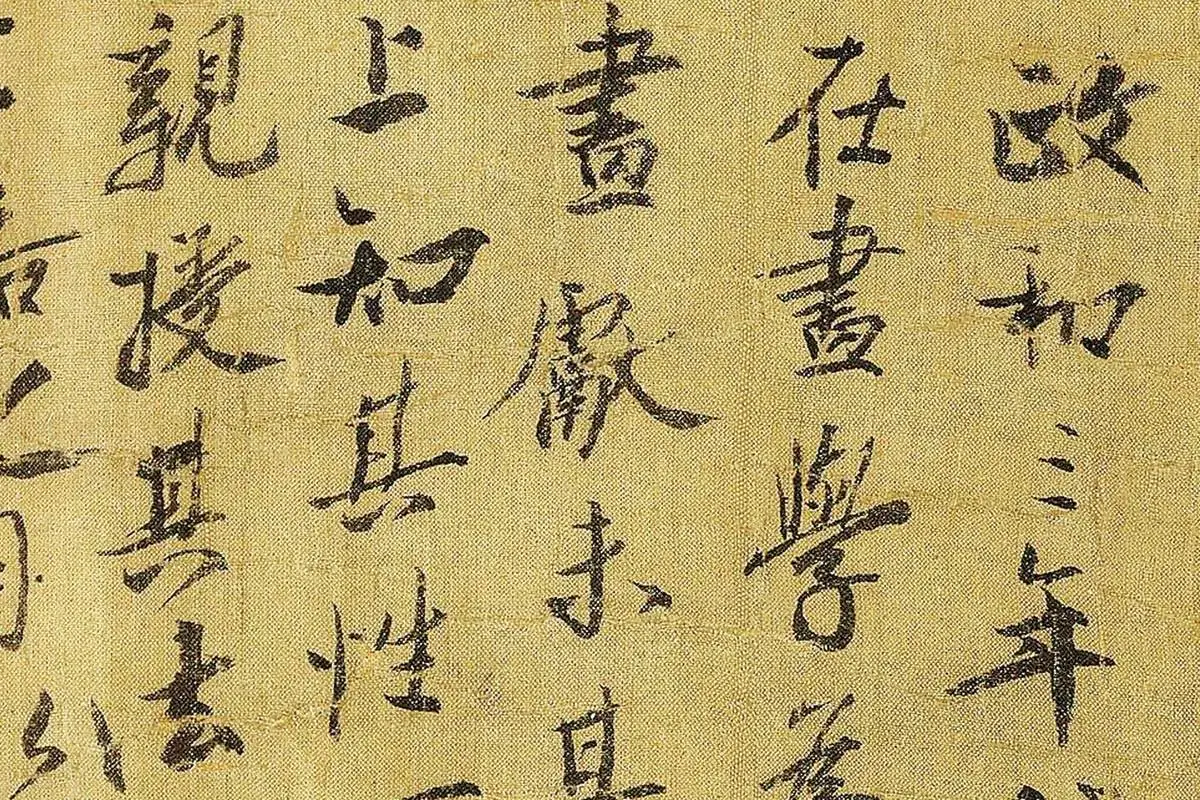 政和三年
在畫學為
畫獻未甚
上知其性
親授其法
以